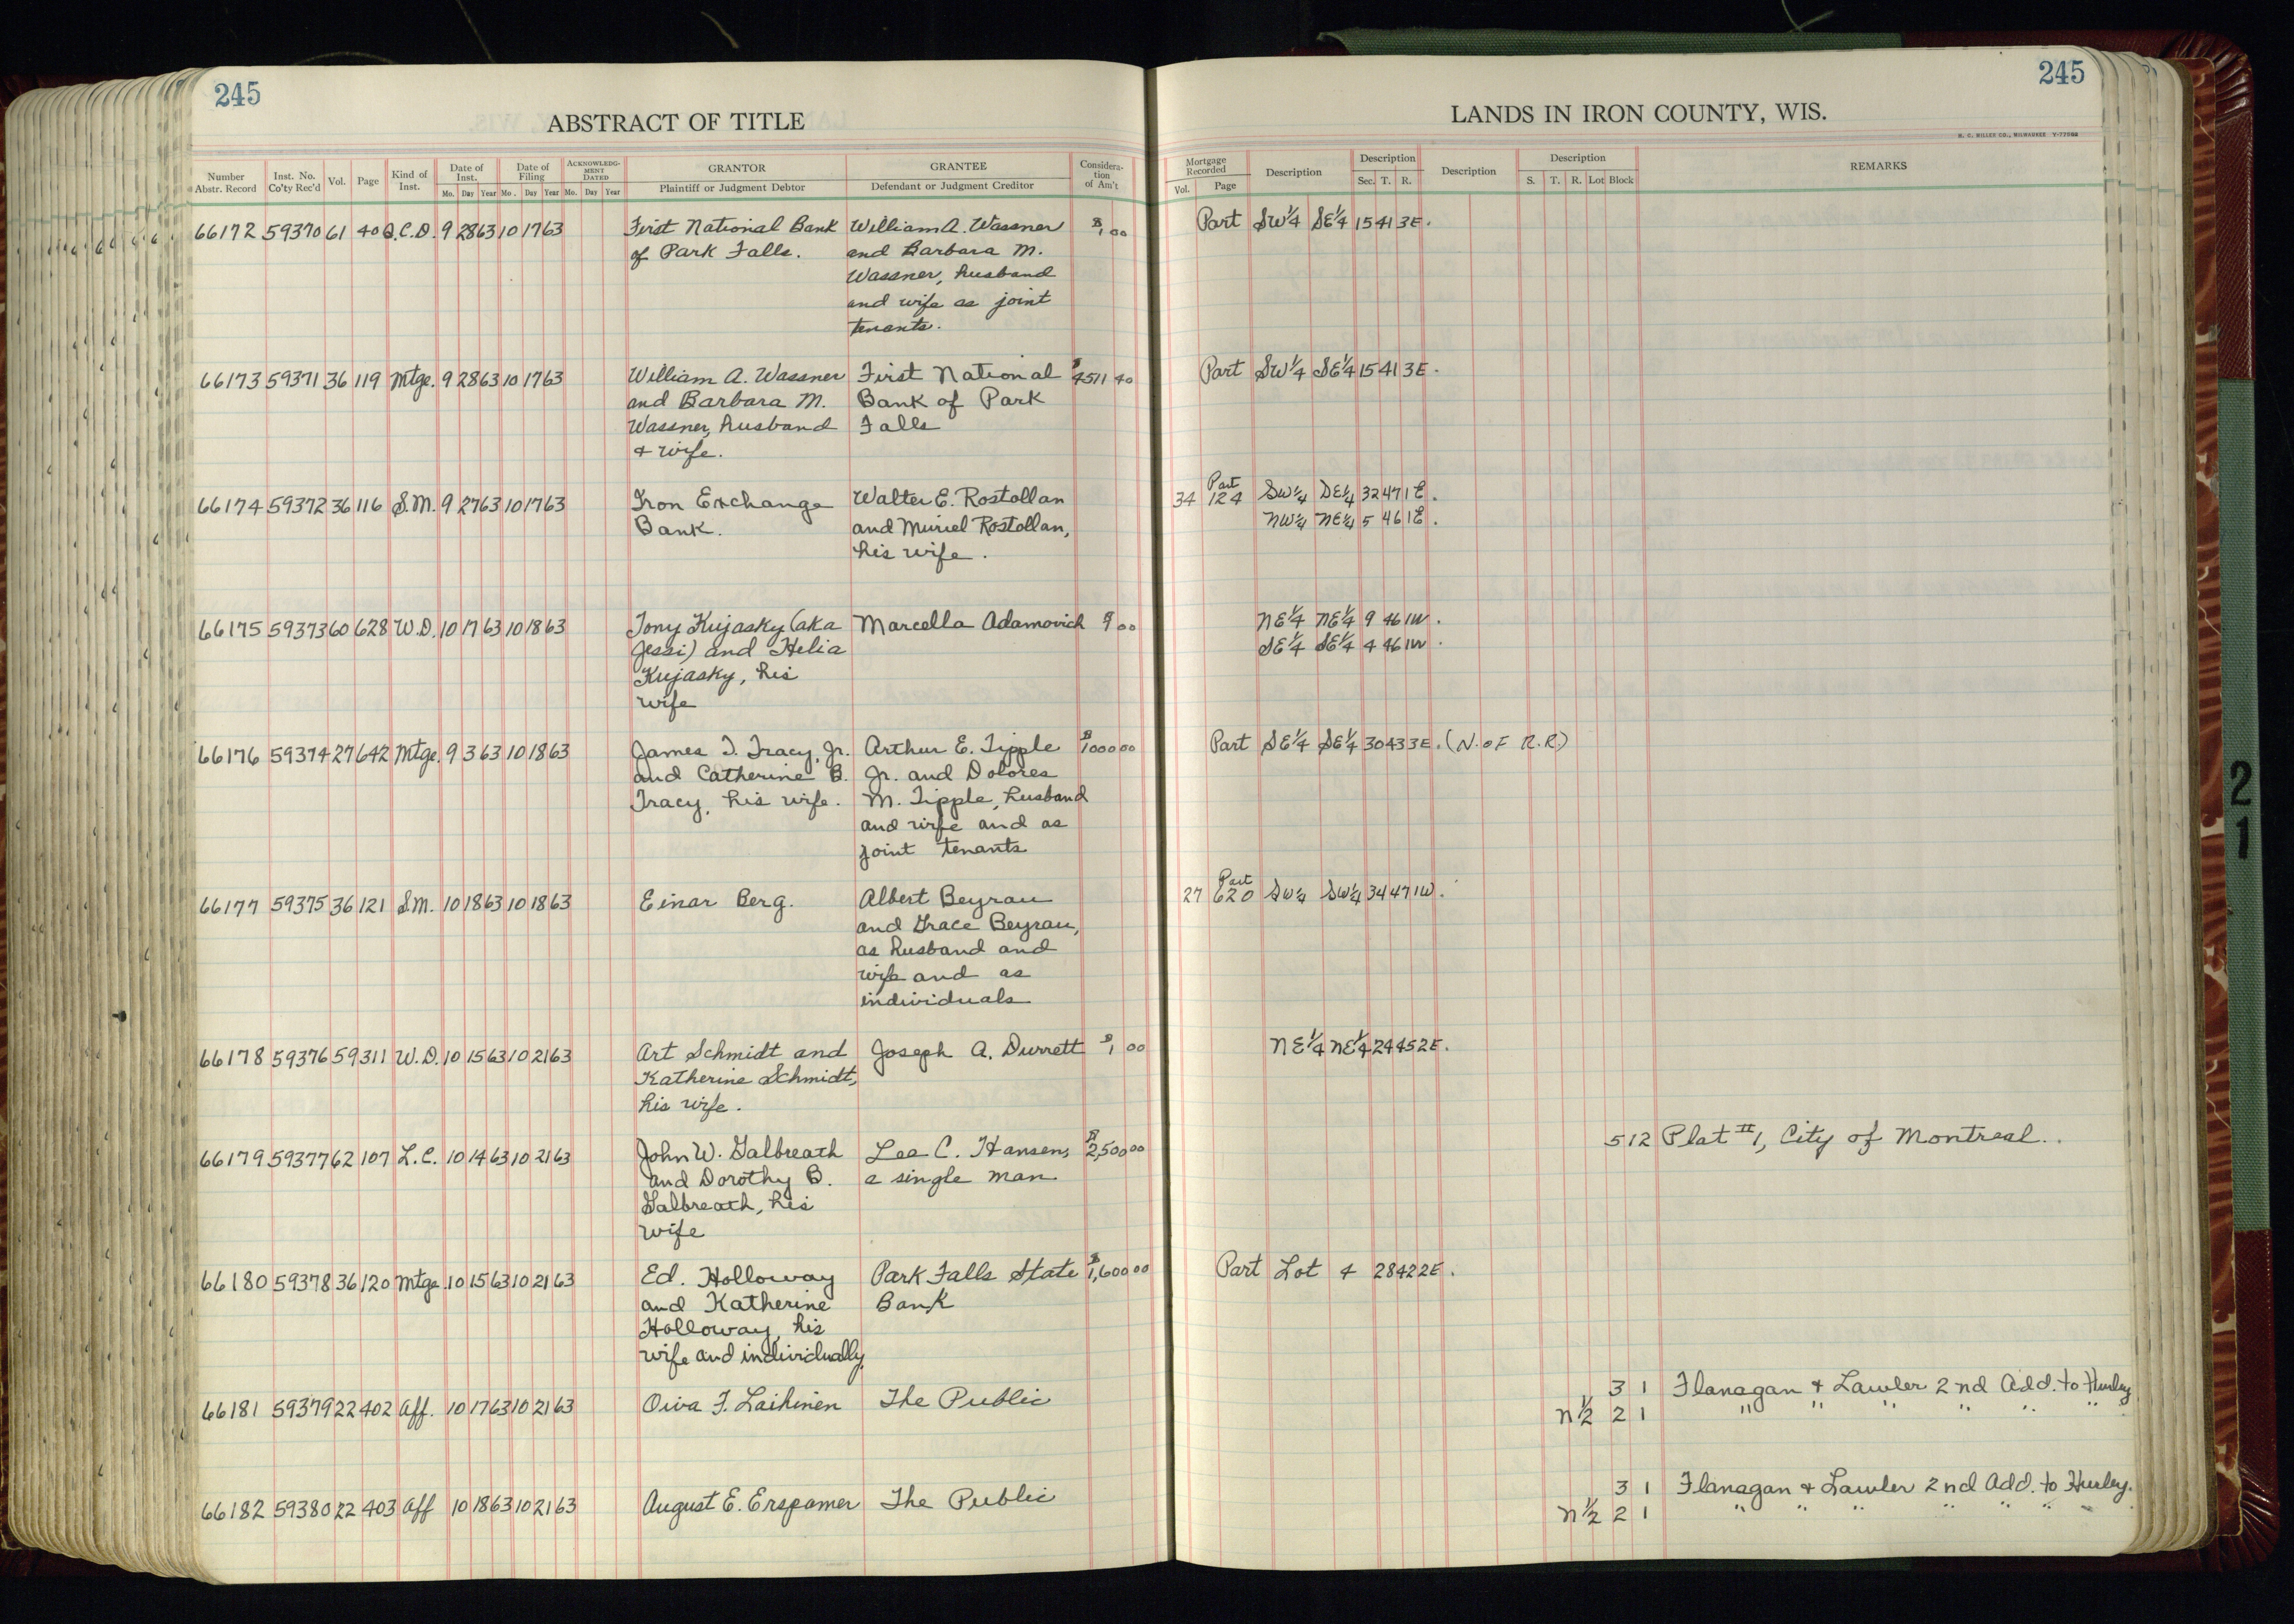 245
ABSTRACT OF TITLE
Number Abstr. Record | Inst. No. Co'ty Rec'd | Vol. | Page | Kind of Inst. | Date of Inst. Mo. Day Year | Date of Filing Mo. Day Year | ACKNOWLEDGMENT DATED Mo. Day Year | GRANTOR Plaintiff or Judgment Debtor | GRANTEE Defendant or Judgment Creditor | Consideration of Am't
245
LANDS IN IRON COUNTY, WIS.
H. C. MILLER CO., MILWAUKEE
Mortgage Recorded Vol. Page | Description | Description Sec. T. R. | Description | Description S. T. R. Lot Block | REMARKS
66172 59370 61 40 Q.C.D. 9 28 63 10 17 63 First National Bank William A. Wassner $1 00 Part SW¼ SE¼ 15 41 3E.
of Park Falls. and Barbara M.
Wassner, husband
and wife as joint
tenants.
66173 59371 36 119 Mtge. 9 28 63 10 17 63 William A. Wassner First National $4511 40 Part SW¼ SE¼ 15 41 3E.
and Barbara M. Bank of Park
Wassner, husband Falls
+ wife.
66174 59372 36 116 S.M. 9 27 63 10 17 63 Iron Exchange Walter E. Rostollan 34 124 Part SW¼ SE¼ 32 47 1E.
Bank. and Muriel Rostollan, NW¼ NE¼ 5 46 1E.
his wife.
66175 59373 60 628 W.D. 10 17 63 10 18 63 Tony Kujasky (aka Marcella Adamovich 00 NE¼ NE¼ 9 46 1W.
Jessi) and Helia SE¼ SE¼ 4 46 1W.
Kujasky, his
wife
66176 59374 27 642 Mtge. 9 3 63 10 18 63 James T. Tracy, Jr. Arthur E. Tipple $1000 00 Part SE¼ SE¼ 30 43 3E. (N. OF R.R)
and Catherine B. Jr. and Dolores
Tracy, his wife. M. Tipple, husband
and wife and as
joint tenants
66177 59375 36 121 S.M. 10 18 63 10 18 63 Einar Berg. Albert Beyrau 27 620 Part SW¼ SW¼ 34 47 1W.
and Grace Beyrau,
as husband and
wife and as
individuals
66178 59376 59 311 W.D. 10 15 63 10 21 63 Art Schmidt and Joseph A. Durrett $1 00 NE¼ NE¼ 24 45 2E.
Katherine Schmidt,
his wife.
66179 59377 62 107 L.C. 10 14 63 10 21 63 John W. Galbreath Lee C. Hansen, $2,500 00 5 12 Plat #1, City of Montreal.
and Dorothy B. a single man
Galbreath, his
wife
66180 59378 36 120 Mtge 10 15 63 10 21 63 Ed. Holloway Park Falls State $1,600 00 Part Lot 4 28 42 2E.
and Katherine Bank
Holloway, his
wife and individually
66181 59379 22 402 Aff. 10 17 63 10 21 63 Oiva F. Laihinen The Public 3 1 Flanagan + Lawler 2nd Add. to Hurley
N½ 2 1 " " " " " "
66182 59380 22 403 Aff 10 18 63 10 21 63 August E. Erspamer The Public 3 1 Flanagan + Lawler 2nd Add. to Hurley.
N½ 2 1 " " " " " " "
21